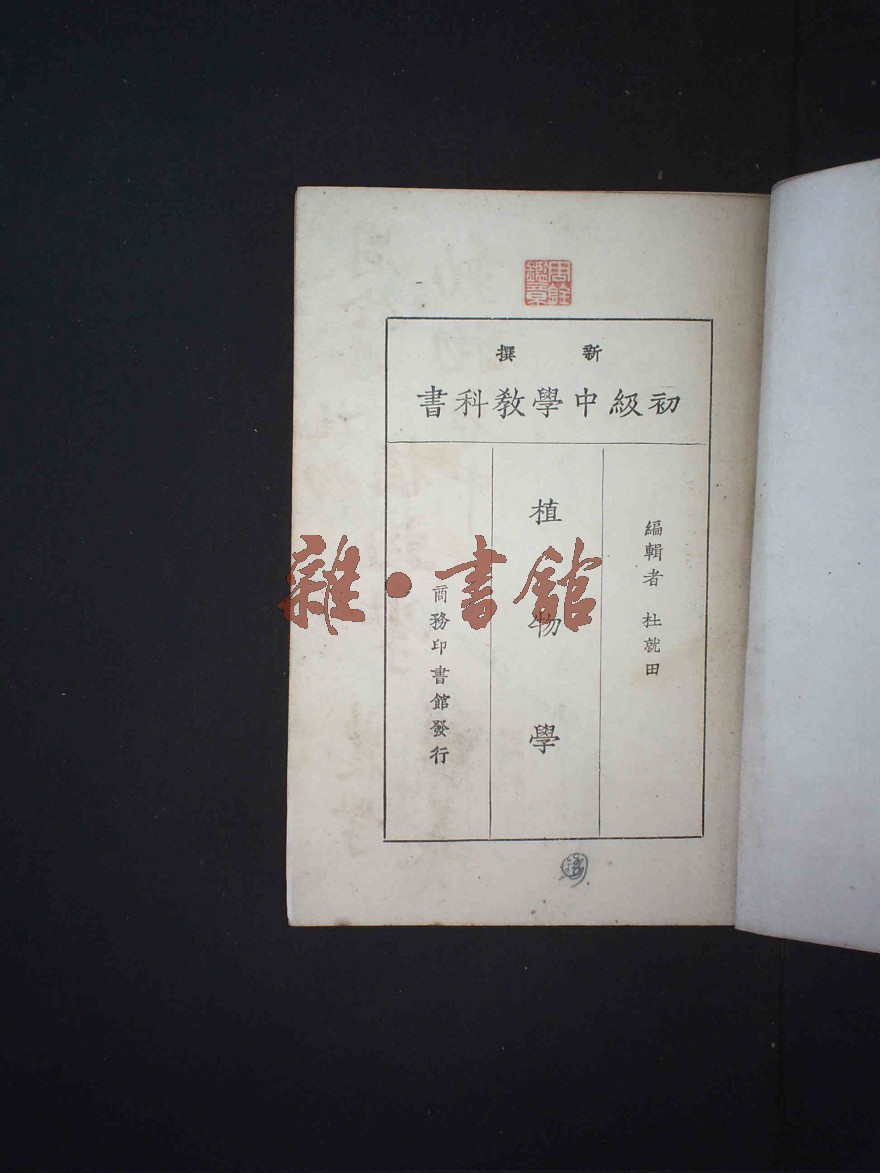 周銓鑑章
新撰
初級中學教科書
編輯者 杜就田
植物學
商務印書館發行
雜·書館